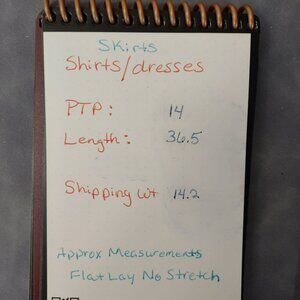 Skirts
Shirts/dresses
PTP: 14
Length: 36.5
Shipping wt 14.2
Approx Measurements
Flat Lay No Stretch